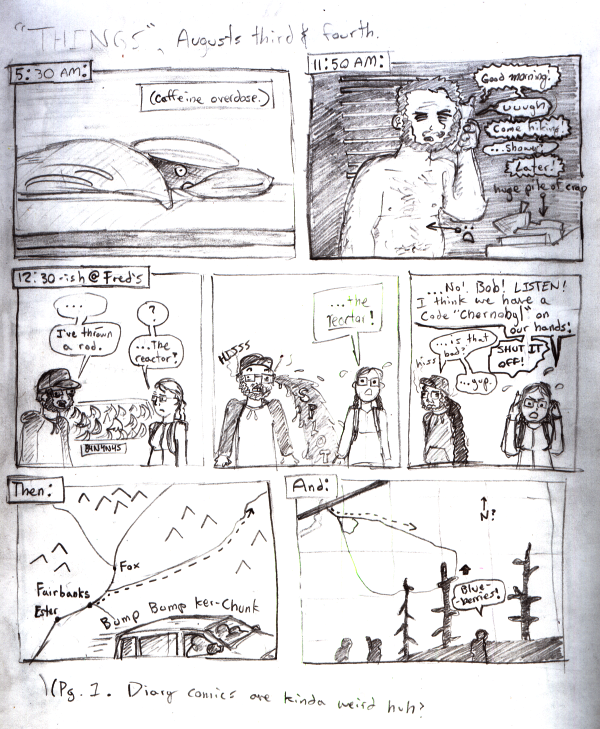 "THINGS", Augusts third & fourth.
5:30 AM:
(Caffeine overdose.)
11:50 AM:
Good morning!
uuugh
Come hiking!
...shower
Later!
huge pile of crap
12:30-ish @ Fred's
....
I've thrown
a rod.
?
...The
reactor?
BANANAS
HISSS
SPLOT
...the
reactor!
...No! Bob! LISTEN!
I think we have a
Code "Chernobyl" on
our hands!
...is that
bad?
hiss
SHUT IT
OFF!
...yup.
Then:
Fox
Fairbanks
Ester
Bump Bump Ker-Chunk
And:
N?
Blue-
-berries!
(Pg. 1. Diary comics are kinda weird huh?